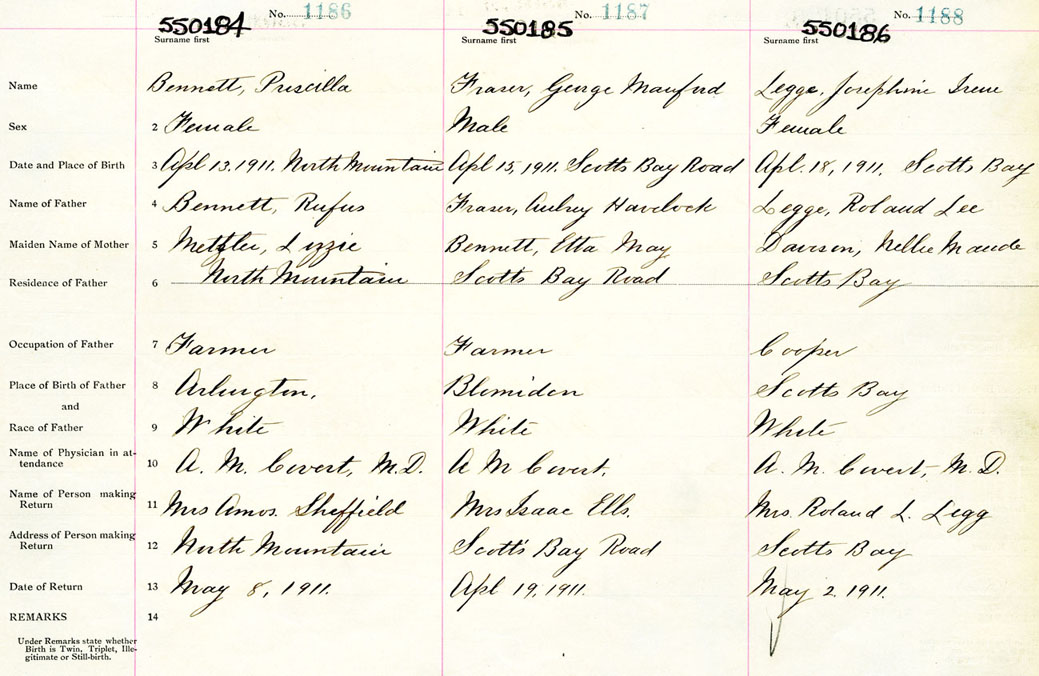 No. 1186 No. 1187 No. 1188
550184 550185 550186
Surname first Surname first Surname first
Name Bennett, Priscilla Fraser, George Manford Legge, Josephine Irene
Sex 2 Female Male Female
Date and Place of Birth 3 Apl 13. 1911. North Mountain Apl 15, 1911. Scotts Bay Road Apl. 18, 1911. Scotts Bay
Name of Father 4 Bennett, Rufus Fraser, Aubrey Havelock Legge, Roland Lee
Maiden Name of Mother 5 Metzler, Lizzie Bennett, Etta May Davison, Nellie Maude
Residence of Father 6 North Mountain Scotts Bay Road Scotts Bay
Occupation of Father 7 Farmer Farmer Cooper
Place of Birth of Father 8 Arlington, Blomidon Scotts Bay
and
Race of Father 9 White White White
Name of Physician in at-
tendance 10 A. M. Covert, M.D. A M Covert. A. M. Covert, M.D.
Name of Person making
Return 11 Mrs Amos. Sheffield Mrs Isaac Ells. Mrs. Roland L. Legg
Address of Person making
Return 12 North Mountain Scott's Bay Road Scotts Bay
Date of Return 13 May 8, 1911. Apl 19, 1911. May 2 1911.
REMARKS 14
Under Remarks state whether
Birth is Twin, Triplet, Ille-
gitimate or Still-birth.